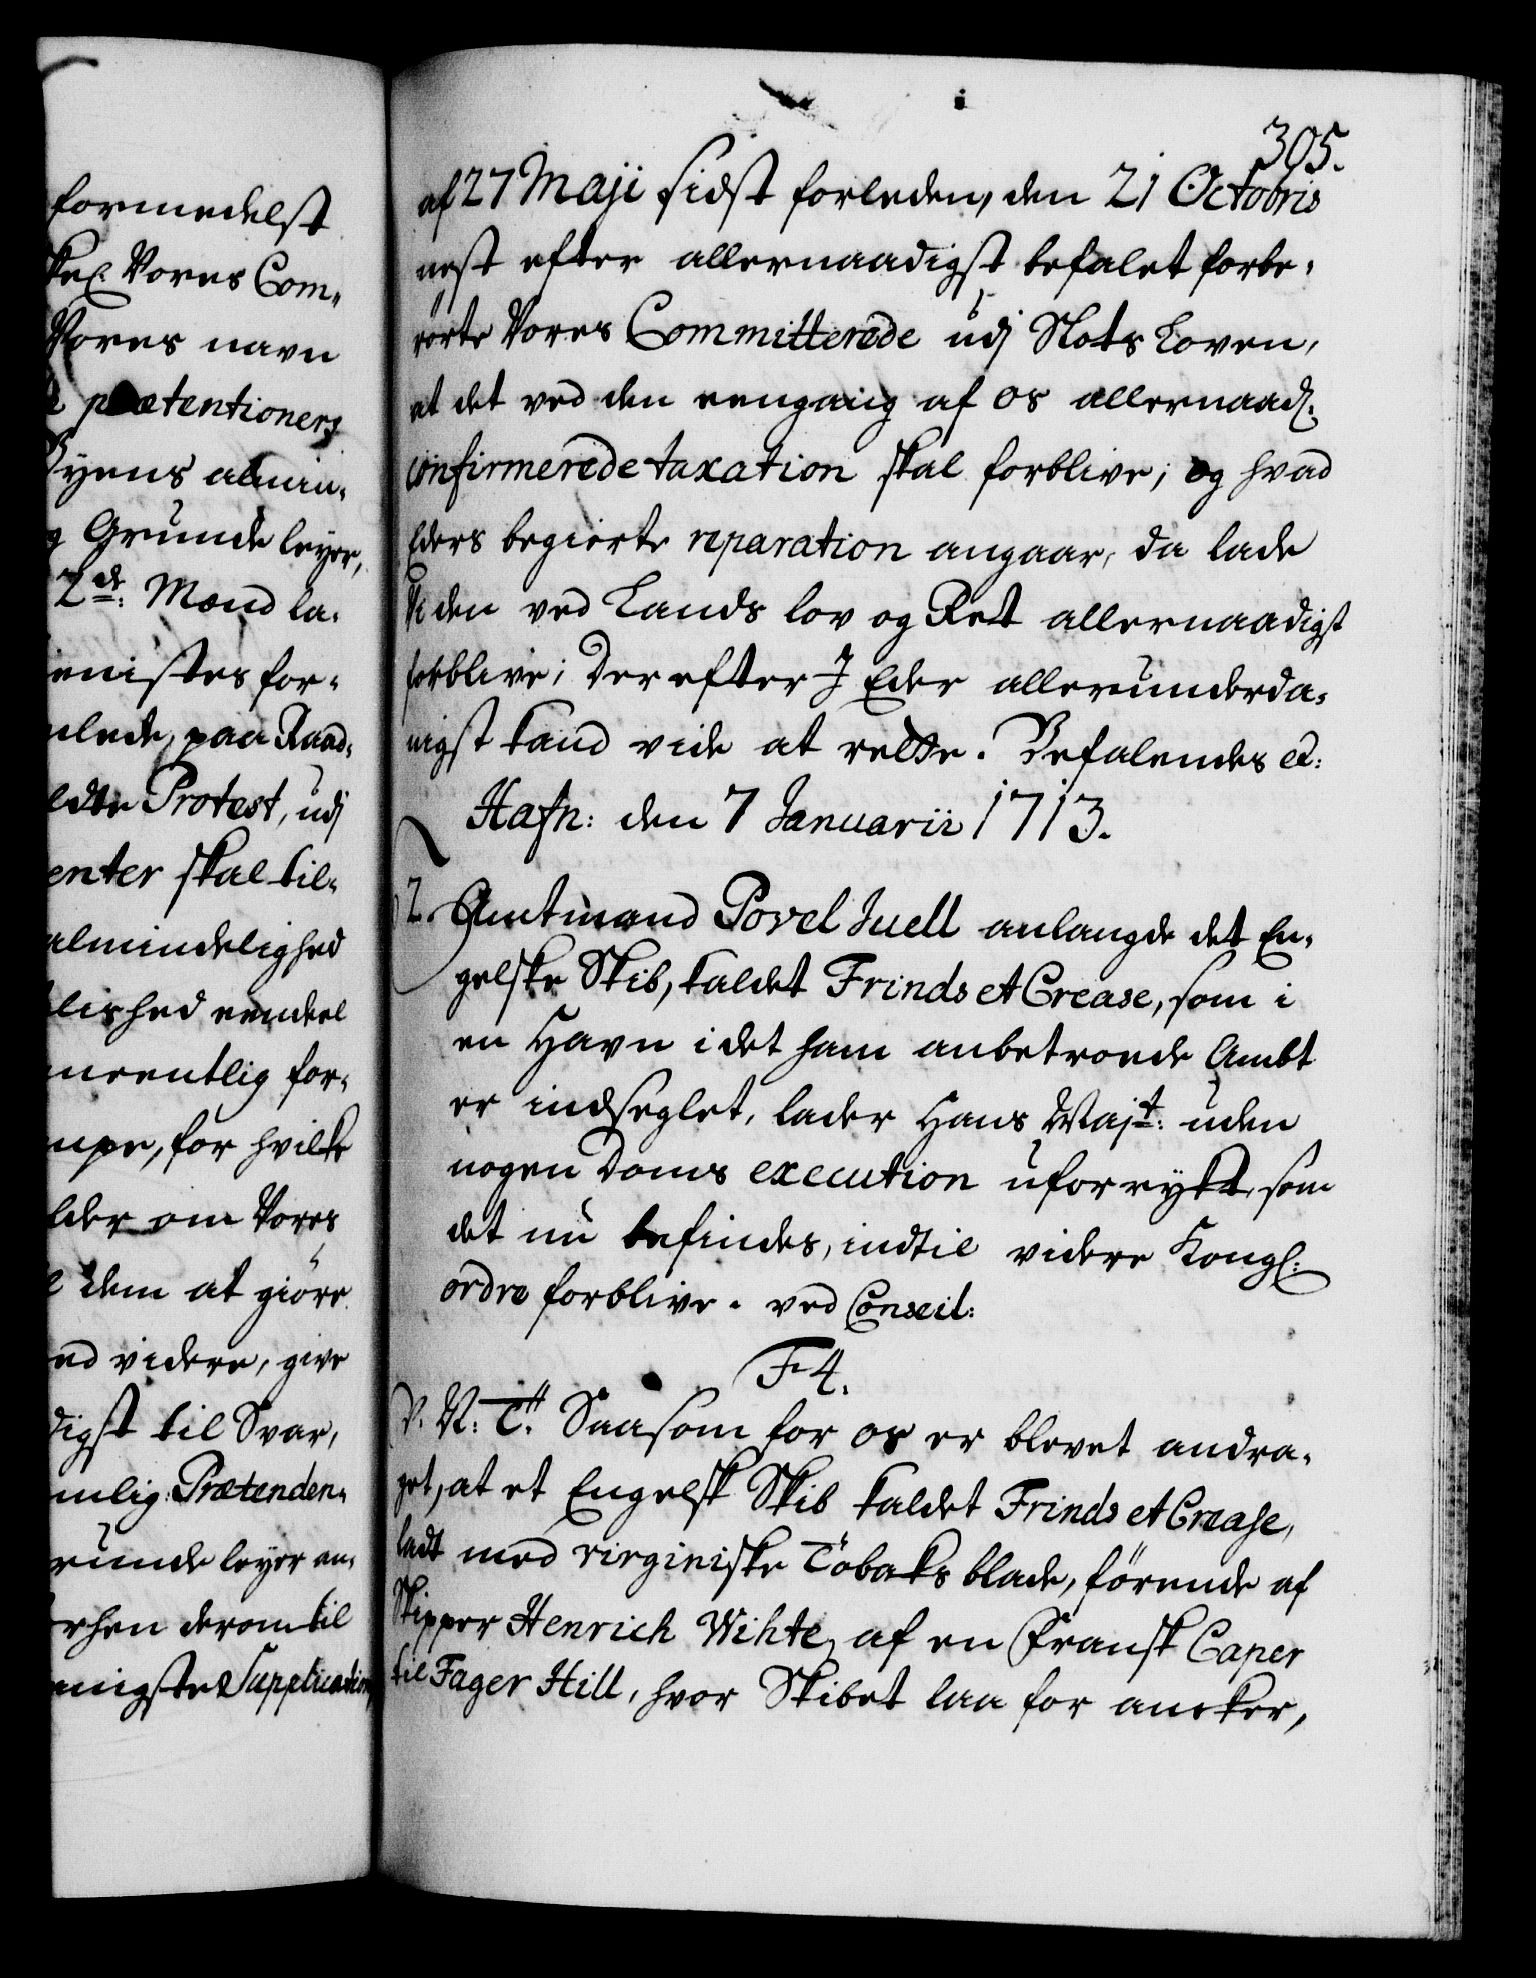 formedelst
Vores Com-
Vores navn
prætentioners
Byens almin-
Grunde leyer,
2de: Mænd la-
enistes for-
paa Raad-
Protest, udj
enter skal til-
almindelighed
lished eendeel
neentlig for-
for hvilke
om Vores
dem at giöre
videre, give
digst til Svar,
mlig: Prætenden-
runde leyer an-
rhen derom til
nigste Supplication
305.
af 27 Maji sidst forleden, den 21 Octobris
nest efter allernaadigst befalet forbe-
rörte Vores Committerede udj Slots Loven,
at det ved den eengang af os allernaad:
confirmerede taxation skal forblive; og hvad
Eders begierte reparation angaar, da lade
Vi den ved Lands lov og Ret allernaadigst
forblive; Derefter I Eder allerunderda-
nigst kand vide at rette. Befalendes et:
Hafn: den 7 Januarii 1713.
2. Amtmand Povel Juell anlangde det En-
gelske Skib, kaldet Frinds et Crease, som i
en Havn i det ham anbetroede Ambt
er indseglet, lader Hans Majt: uden
nogen Doms execution uforrykt, som
det nu befindes, indtil videre Kongl:
ordre forblive. ved Conseil:
F 4.
V. N: T: Saasom for os er blevet andra-
get, at et Engelsk Skib kaldet Frinds et Crease,
ladt med virginiske Tobaks blade, förende af
Skipper Henrich Wihte, af en Fransk Caper
til Fager Hill, hvor Skibet laa for ancker,